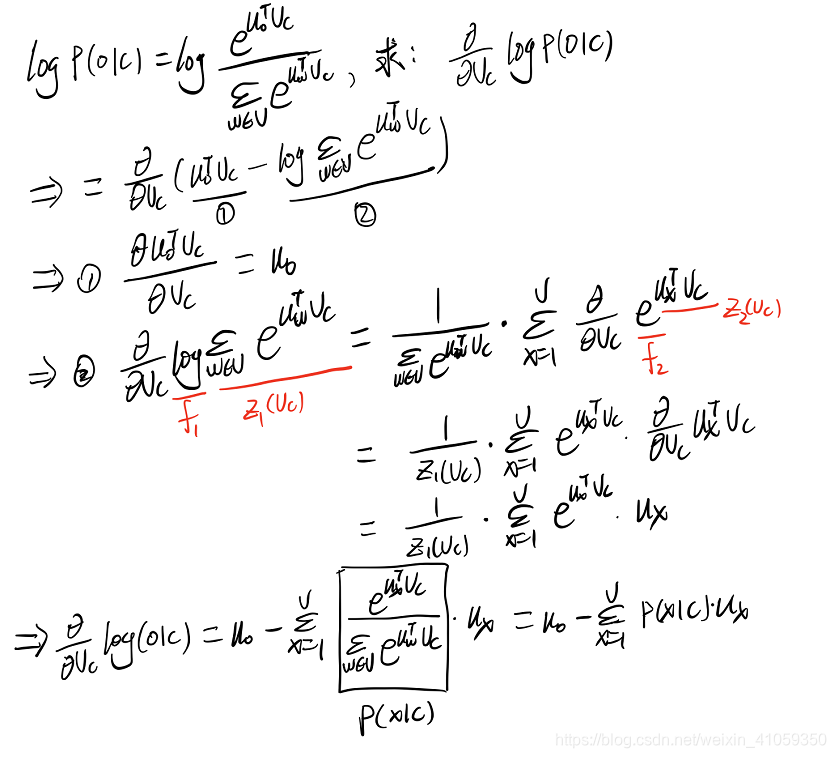 log P(o|c) = log \frac{e^{u_o^T v_c}}{\sum_{w∈V} e^{u_w^T v_c}}, 求: \frac{∂}{∂v_c} log P(o|c)
⇒ = \frac{∂}{∂v_c} (\underline{u_o^T v_c}_{①} - \underline{log \sum_{w∈V} e^{u_w^T v_c}}_{②})
⇒ ① \frac{∂u_o^T v_c}{∂v_c} = u_o
⇒ ② \frac{∂}{∂v_c} log \sum_{w∈V} e^{u_w^T v_c} = \frac{1}{\sum_{w∈V} e^{u_w^T v_c}} · \sum_{x=1}^{V} \frac{∂}{∂v_c} e^{u_x^T v_c}
f_1 z_1(v_c) f_2 z_2(v_c)
= \frac{1}{z_1(v_c)} · \sum_{x=1}^{V} e^{u_x^T v_c} · \frac{∂}{∂v_c} u_x^T v_c
= \frac{1}{z_1(v_c)} · \sum_{x=1}^{V} e^{u_x^T v_c} · u_x
⇒ \frac{∂}{∂v_c} log(o|c) = u_o - \sum_{x=1}^{V} \frac{e^{u_x^T v_c}}{\sum_{w∈V} e^{u_w^T v_c}} · u_x = u_o - \sum_{x=1}^{V} P(x|c)·u_x
P(x|c)
https://blog.csdn.net/weixin_41059350